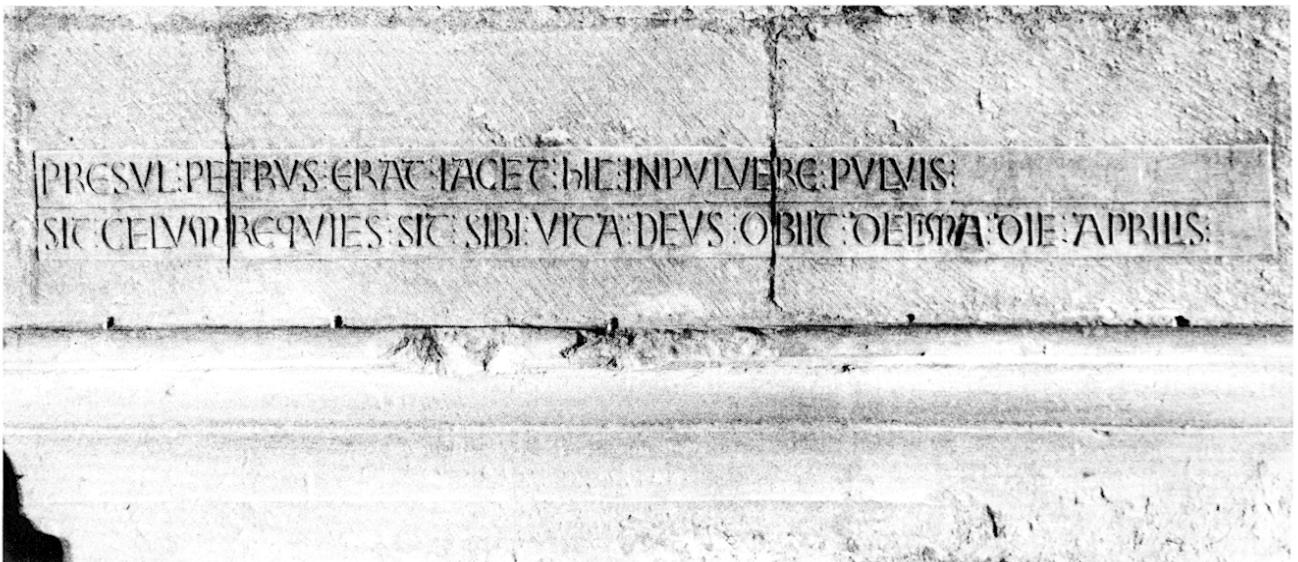 PRESVL:PETRVS:ERAT:IACET:hIC:INPVLVERE:PVLVIS:
SIT:CELVM REQVIES:SIT:SIBI:VITA:DEVS:OBIIT:DECIMA:DIE:APRILIS: